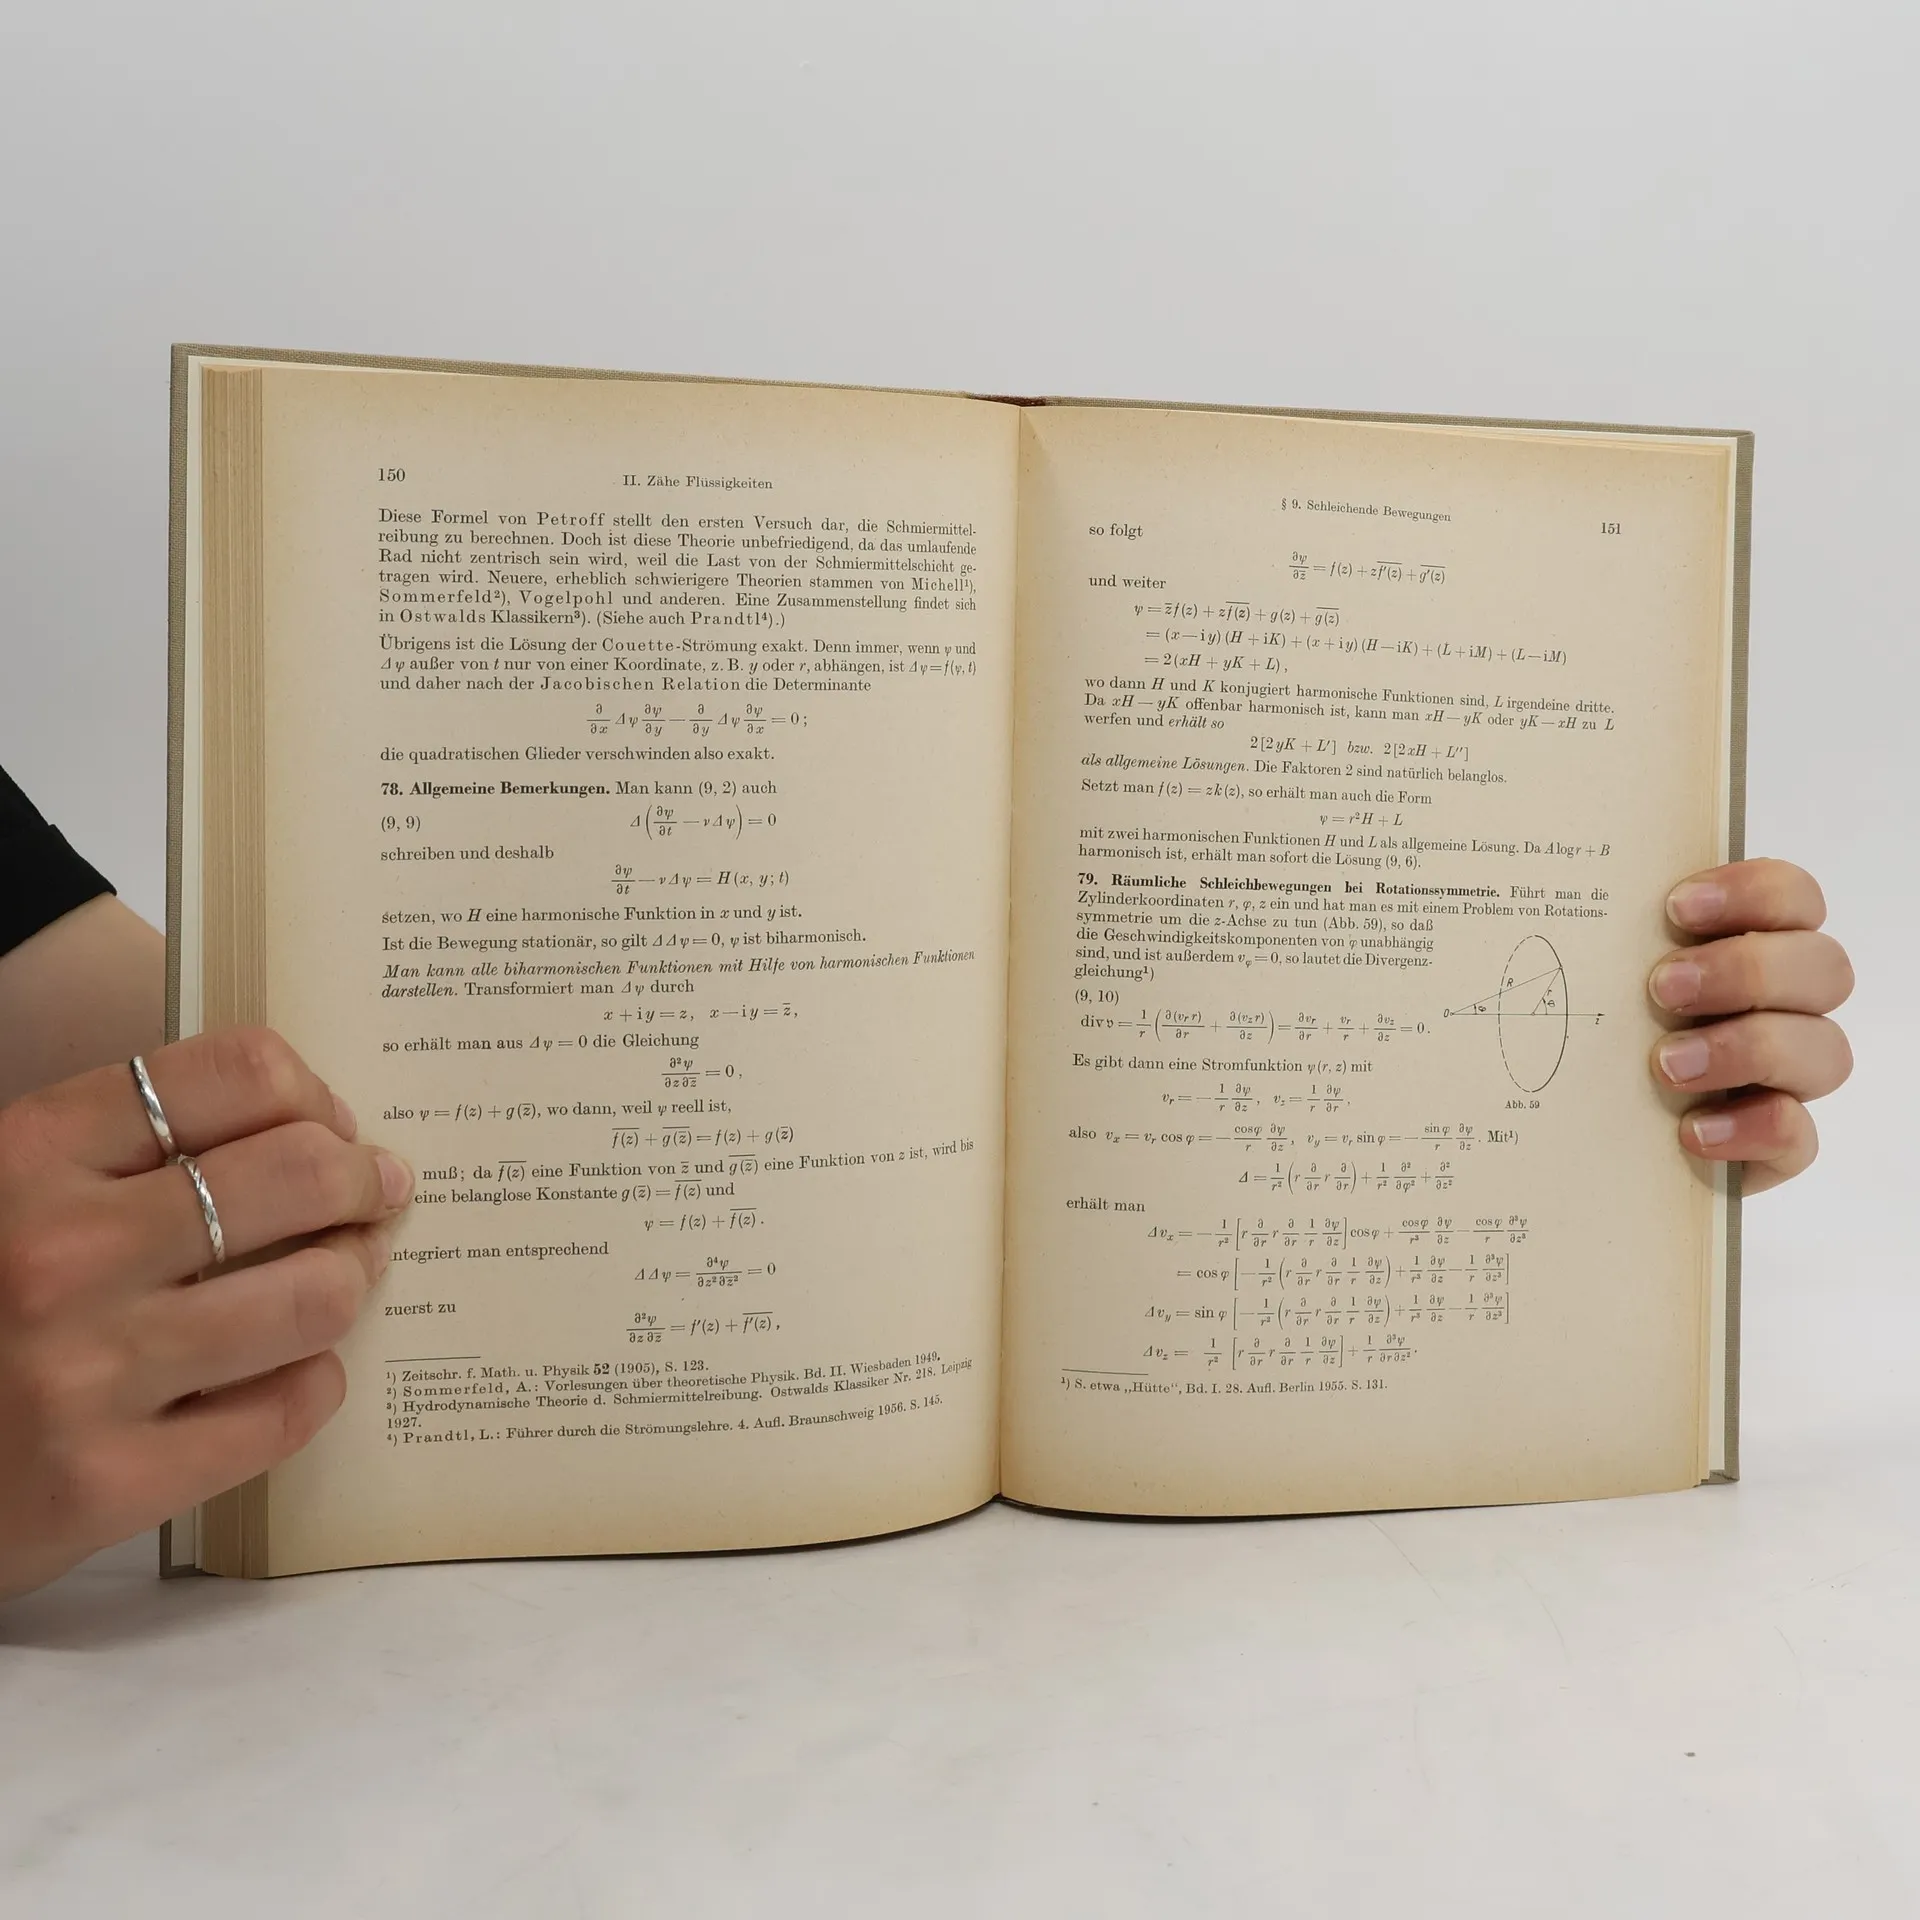 150
II. Zähe Flüssigkeiten
Diese Formel von Petroff stellt den ersten Versuch dar, die Schmiermittel-
reibung zu berechnen. Doch ist diese Theorie unbefriedigend, da das umlaufende
Rad nicht zentrisch sein wird, weil die Last von der Schmiermittelschicht ge-
tragen wird. Neuere, erheblich schwierigere Theorien stammen von Michell¹),
Sommerfeld²), Vogelpohl und anderen. Eine Zusammenstellung findet sich
in Ostwalds Klassikern³). (Siehe auch Prandtl⁴).)
Übrigens ist die Lösung der Couette-Strömung exakt. Denn immer, wenn ψ und
Δψ außer von t nur von einer Koordinate, z. B. y oder r, abhängen, ist Δψ = f(ψ, t)
und daher nach der Jacobischen Relation die Determinante
∂/∂x Δψ ∂ψ/∂y − ∂/∂y Δψ ∂ψ/∂x = 0;
die quadratischen Glieder verschwinden also exakt.
78. Allgemeine Bemerkungen. Man kann (9, 2) auch
(9, 9) Δ(∂ψ/∂t − νΔψ) = 0
schreiben und deshalb
∂ψ/∂t − νΔψ = H(x, y; t)
setzen, wo H eine harmonische Funktion in x und y ist.
Ist die Bewegung stationär, so gilt ΔΔψ = 0, ψ ist biharmonisch.
Man kann alle biharmonischen Funktionen mit Hilfe von harmonischen Funktionen
darstellen. Transformiert man Δψ durch
x + iy = z, x − iy = z̅,
so erhält man aus Δψ = 0 die Gleichung
∂²ψ/∂z∂z̅ = 0,
also ψ = f(z) + g(z̅), wo dann, weil ψ reell ist,
\overline{f(z)} + \overline{g(z̅)} = f(z) + g(z̅)
muß; da \overline{f(z)} eine Funktion von z̅ und \overline{g(z̅)} eine Funktion von z ist, wird bis
eine belanglose Konstante g(z̅) = \overline{f(z)} und
ψ = f(z) + \overline{f(z)}.
ntegriert man entsprechend
ΔΔψ = ∂⁴ψ/∂z²∂z̅² = 0
zuerst zu
∂²ψ/∂z∂z̅ = f′(z) + \overline{f′(z)},
¹) Zeitschr. f. Math. u. Physik 52 (1905), S. 123.
²) Sommerfeld, A.: Vorlesungen über theoretische Physik. Bd. II. Wiesbaden 1949.
³) Hydrodynamische Theorie d. Schmiermittelreibung. Ostwalds Klassiker Nr. 218. Leipzig
1927.
⁴) Prandtl, L.: Führer durch die Strömungslehre. 4. Aufl. Braunschweig 1956. S. 145.
§ 9. Schleichende Bewegungen
151
so folgt
∂ψ/∂z̅ = f(z) + z\overline{f′(z)} + \overline{g′(z)}
und weiter
ψ = z̅f(z) + z\overline{f(z)} + g(z) + \overline{g(z)}
= (x − iy)(H + iK) + (x + iy)(H − iK) + (L + iM) + (L − iM)
= 2(xH + yK + L),
wo dann H und K konjugiert harmonische Funktionen sind, L irgendeine dritte.
Da xH − yK offenbar harmonisch ist, kann man xH − yK oder yK − xH zu L
werfen und erhält so
2[2yK + L′] bzw. 2[2xH + L″]
als allgemeine Lösungen. Die Faktoren 2 sind natürlich belanglos.
Setzt man f(z) = zk(z), so erhält man auch die Form
ψ = r²H + L
mit zwei harmonischen Funktionen H und L als allgemeine Lösung. Da A log r + B
harmonisch ist, erhält man sofort die Lösung (9, 6).
79. Räumliche Schleichbewegungen bei Rotationssymmetrie. Führt man die
Zylinderkoordinaten r, φ, z ein und hat man es mit einem Problem von Rotations-
symmetrie um die z-Achse zu tun (Abb. 59), so daß
die Geschwindigkeitskomponenten von φ unabhängig
sind, und ist außerdem v_φ = 0, so lautet die Divergenz-
gleichung¹)
(9, 10)
div 𝔳 = 1/r (∂(v_r r)/∂r + ∂(v_z r)/∂z) = ∂v_r/∂r + v_r/r + ∂v_z/∂z = 0.
Es gibt dann eine Stromfunktion ψ(r, z) mit
v_r = − 1/r ∂ψ/∂z, v_z = 1/r ∂ψ/∂r,
R r 0 φ ϑ z
Abb. 59
also v_x = v_r cos φ = − cos φ/r ∂ψ/∂z, v_y = v_r sin φ = − sin φ/r ∂ψ/∂z. Mit¹)
Δ = 1/r² (r ∂/∂r r ∂/∂r) + 1/r² ∂²/∂φ² + ∂²/∂z²
erhält man
Δv_x = − 1/r² [r ∂/∂r r ∂/∂r 1/r ∂ψ/∂z] cos φ + cos φ/r³ ∂ψ/∂z − cos φ/r ∂³ψ/∂z³
= cos φ [− 1/r² (r ∂/∂r r ∂/∂r 1/r ∂ψ/∂z) + 1/r³ ∂ψ/∂z − 1/r ∂³ψ/∂z³]
Δv_y = sin φ [− 1/r² (r ∂/∂r r ∂/∂r 1/r ∂ψ/∂z) + 1/r³ ∂ψ/∂z − 1/r ∂³ψ/∂z³]
Δv_z = 1/r² [r ∂/∂r r ∂/∂r 1/r ∂ψ/∂z] + 1/r ∂³ψ/∂r∂z².
¹) S. etwa „Hütte“, Bd. I. 28. Aufl. Berlin 1955. S. 131.